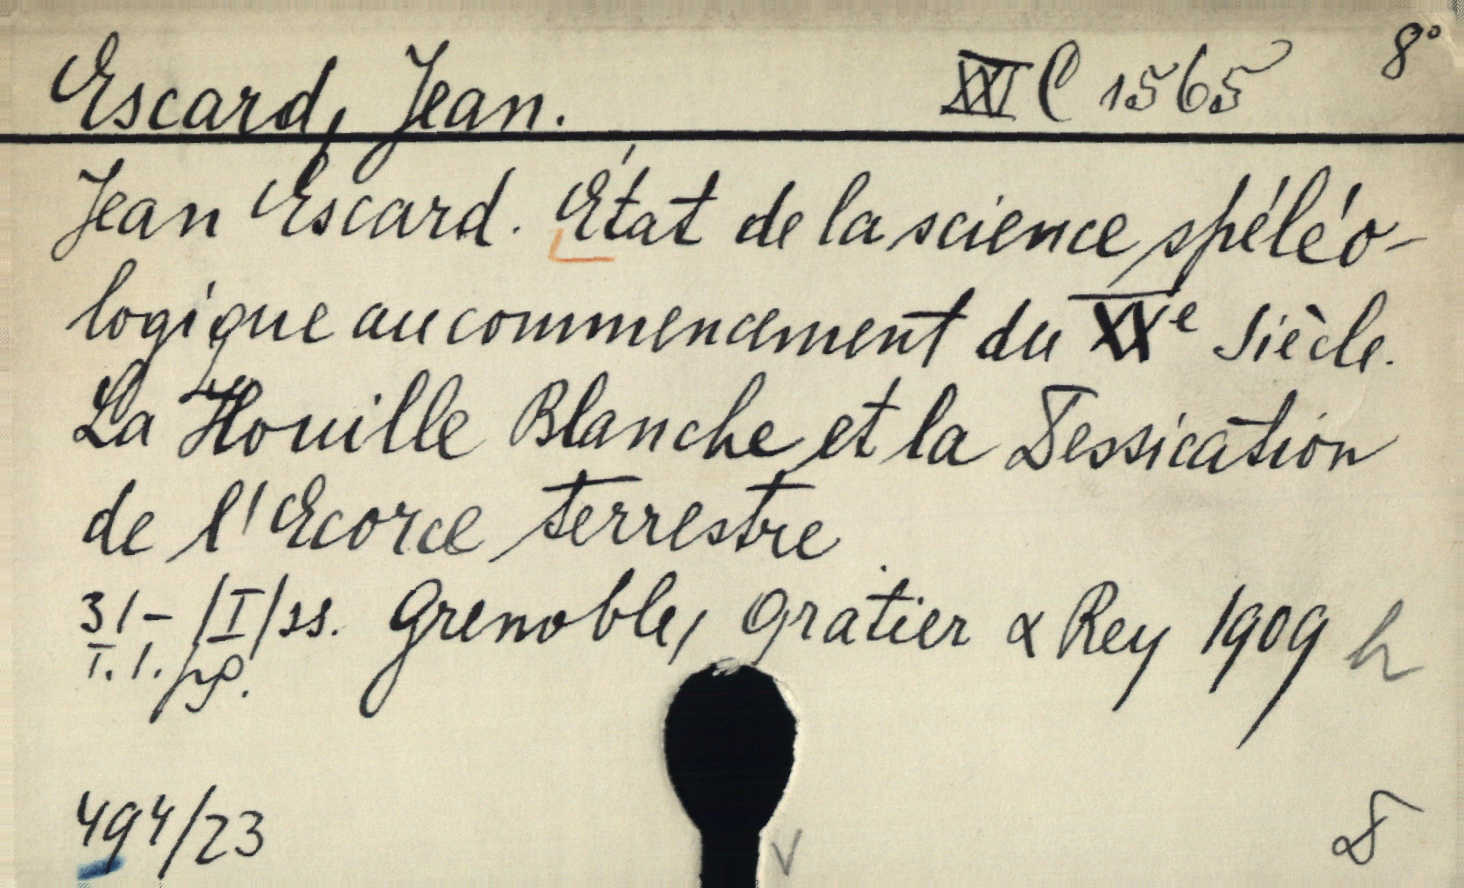 Escard, Jean. XXI C 1565 8°
Jean Escard. État de la science spéléo-
logique au commencement du XXe Siècle.
La Houille Blanche et la Dessication
de l'Ecorce terrestre
31 - /I/ ss. Grenoble, Gratier & Rey 1909 h
T. 1. pp.
494/23